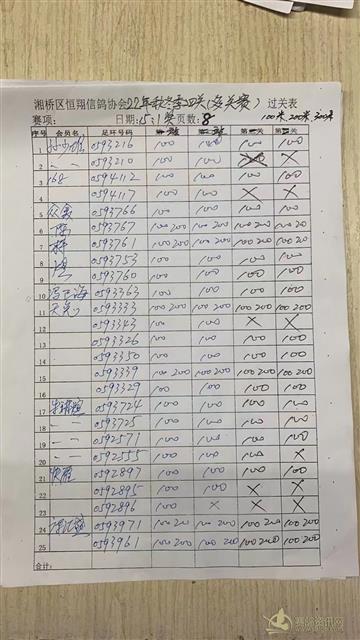 湘桥区恒翔信鸽协会22年秋冬季四关(多关赛)过关表
赛项: 日期:5:1奖页数:8 100米,200米,300米
序号 会员名 足环号码 关 关
1 0593216 100 100 100 100
2 一一 0593210 100 100 X
3 168 0594112 100 100 100 100
4 0594117 100 100 X X
5 0593766 100 100 100 100
6 0593767 100 200 100 200 100 200 100 20
7 0593761 100 200 100 200 100 200 100 200
8 0593753 100 100 100 100
9 0593760 100 100 100 100
10 0593363 100 100 100 100
11 0593333 100 200 100 200 100 200 100 200
12 0593343 100 100 X X
13 0593326 100 100 100 100
14 0593350 100 100 100 100
15 0593339 100 200 100 200 100 200 100 200
16 0593329 100 100 100 100
17 0593724 100 100 100 100
18 一一 0593725 100 100 100 100
19 一一 0592571 100 100 100 100
20 一一 0592555 100 100 100 X
21 0592897 100 100 100 100
22 0592895 100 100 X X
23 0592896 100 X X X
24 0593971 100 200 100 200 100 200 100 200
25 0593961 100 200 100 200 100 200 100 200
合计:
赛鸽资讯网